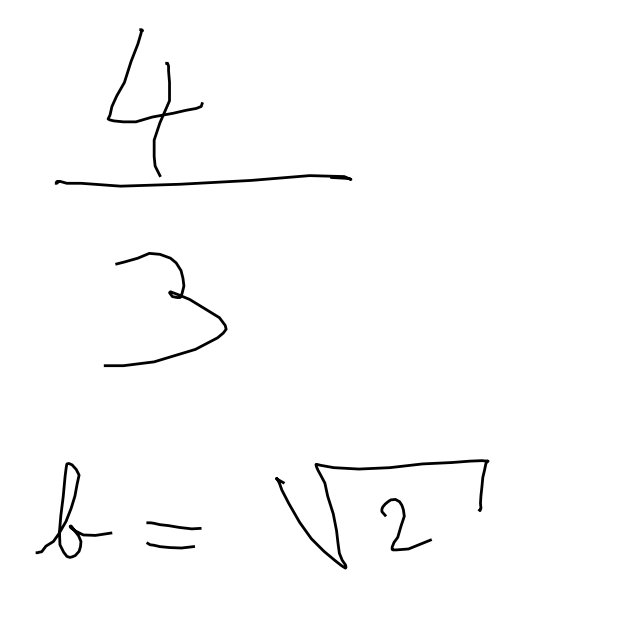 4
3
b = √2